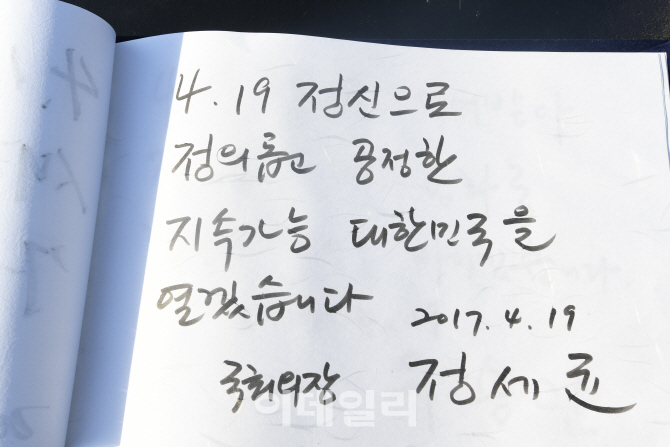 4.19 정신으로
정의롭고 공정한
지속가능 대한민국을
열겠습니다
2017.4.19
국회의장 정세균
이데일리